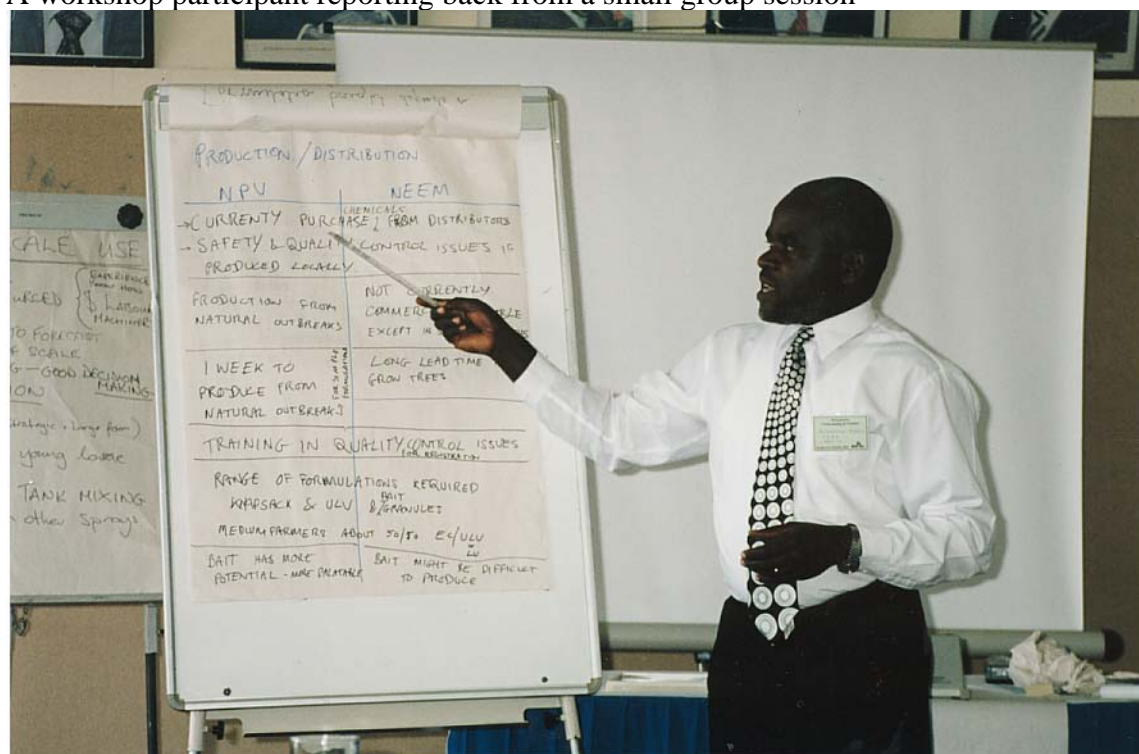 A workshop participant reporting back from a small group session
PRODUCTION / DISTRIBUTION
NPV NEEM
→ CURRENTY PURCHASE CHEMICALS FROM DISTRIBUTORS
→ SAFETY & QUALITY CONTROL ISSUES IF
PRODUCED LOCALLY
PRODUCTION FROM
NATURAL OUTBREAKS
NOT CURRENTLY
EXCEPT IN
1 WEEK TO
PRODUCE FROM
NATURAL OUTBREAKS
FOR SIMPLE
FORMULATIONS
LONG LEAD TIME
GROW TREES
TRAINING IN QUALITY CONTROL ISSUES
FOR REGISTRATION
RANGE OF FORMULATIONS REQUIRED
KNAPSACK & ULV BAIT
&/GRANULES
MEDIUM FARMERS ABOUT 50/50 EC/ULV
LV
BAIT HAS MORE
POTENTIAL - MORE PALATABLE
BAIT MIGHT BE DIFFICULT
TO PRODUCE
CALE USE
EXPERIENCE
$ LABOUR
MACHINERY
TO FORECAST
F SCALE
G - GOOD DECISION
MAKING
ION
strategic + large farm)
young larvae
TANK MIXING
other Sprays